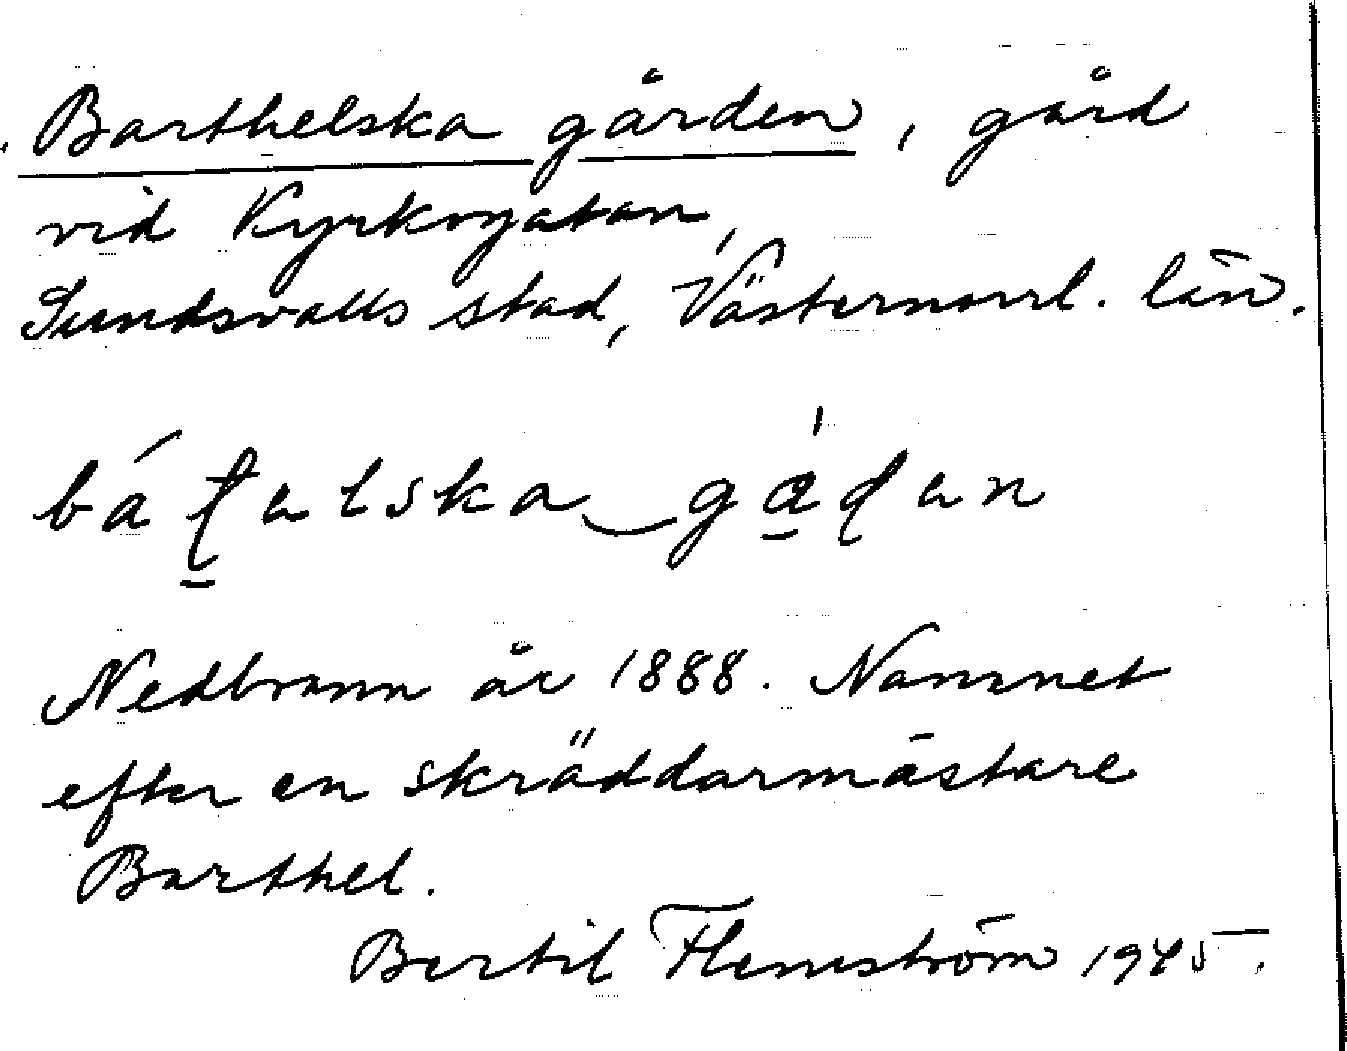 Barthelska gården, gård
vid Kyrkogatan,
Sundsvalls stad, Västernorrl. län.
bátalska gädan
Nedbrann år 1888. Namnet
efter en skräddarmästare
Barthel.
Bertil Flemström 1945.